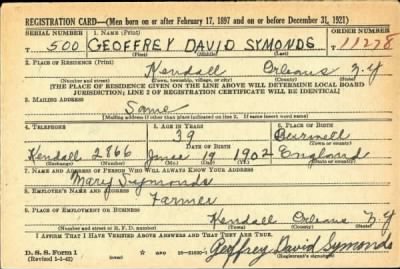 REGISTRATION CARD—(Men born on or after February 17, 1897 and on or before December 31, 1921)
SERIAL NUMBER 1. NAME (Print) ORDER NUMBER
T 500 GEOFFREY DAVID SYMONDS 11278
(First) (Middle) (Last)
2. PLACE OF RESIDENCE (Print)
Kendall Orleans N.Y
(Number and street) (Town, township, village, or city) (County) (State)
[THE PLACE OF RESIDENCE GIVEN ON THE LINE ABOVE WILL DETERMINE LOCAL BOARD
JURISDICTION; LINE 2 OF REGISTRATION CERTIFICATE WILL BE IDENTICAL]
3. MAILING ADDRESS
Same
[Mailing address if other than place indicated on line 2. If same insert word same]
4. TELEPHONE 5. AGE IN YEARS 6. PLACE OF BIRTH
39 Burwell
DATE OF BIRTH (Town or county)
Kendall 2866 June 19 1902 England
(Exchange) (Number) (Mo.) (Day) (Yr.) (State or country)
7. NAME AND ADDRESS OF PERSON WHO WILL ALWAYS KNOW YOUR ADDRESS
Mary Symonds
8. EMPLOYER'S NAME AND ADDRESS
Farmer
9. PLACE OF EMPLOYMENT OR BUSINESS
Kendall Orleans N.Y
(Number and street or R. F. D. number) (Town) (County) (State)
I AFFIRM THAT I HAVE VERIFIED ABOVE ANSWERS AND THAT THEY ARE TRUE.
D. S. S. Form 1
(Revised 1-1-42) (over) Geoffrey David Symonds
(Registrant's signature)